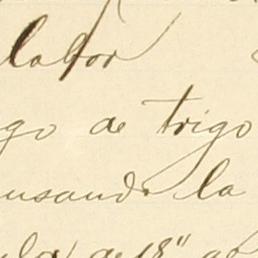 labor
go de trigo
usando la
de 18"